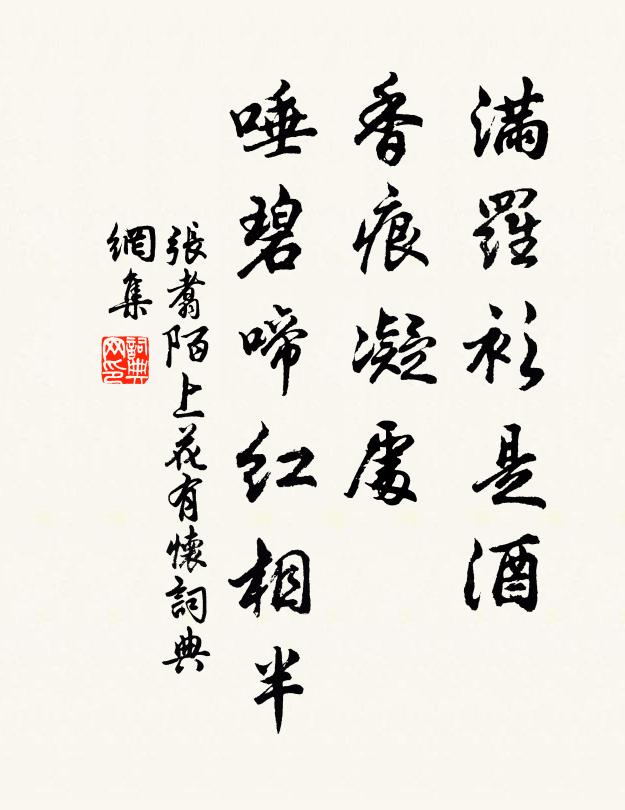 滿羅衫是酒
香痕凝處
唾碧啼紅相半
張翥陌上花有懷詞典
網集
詞典
网印